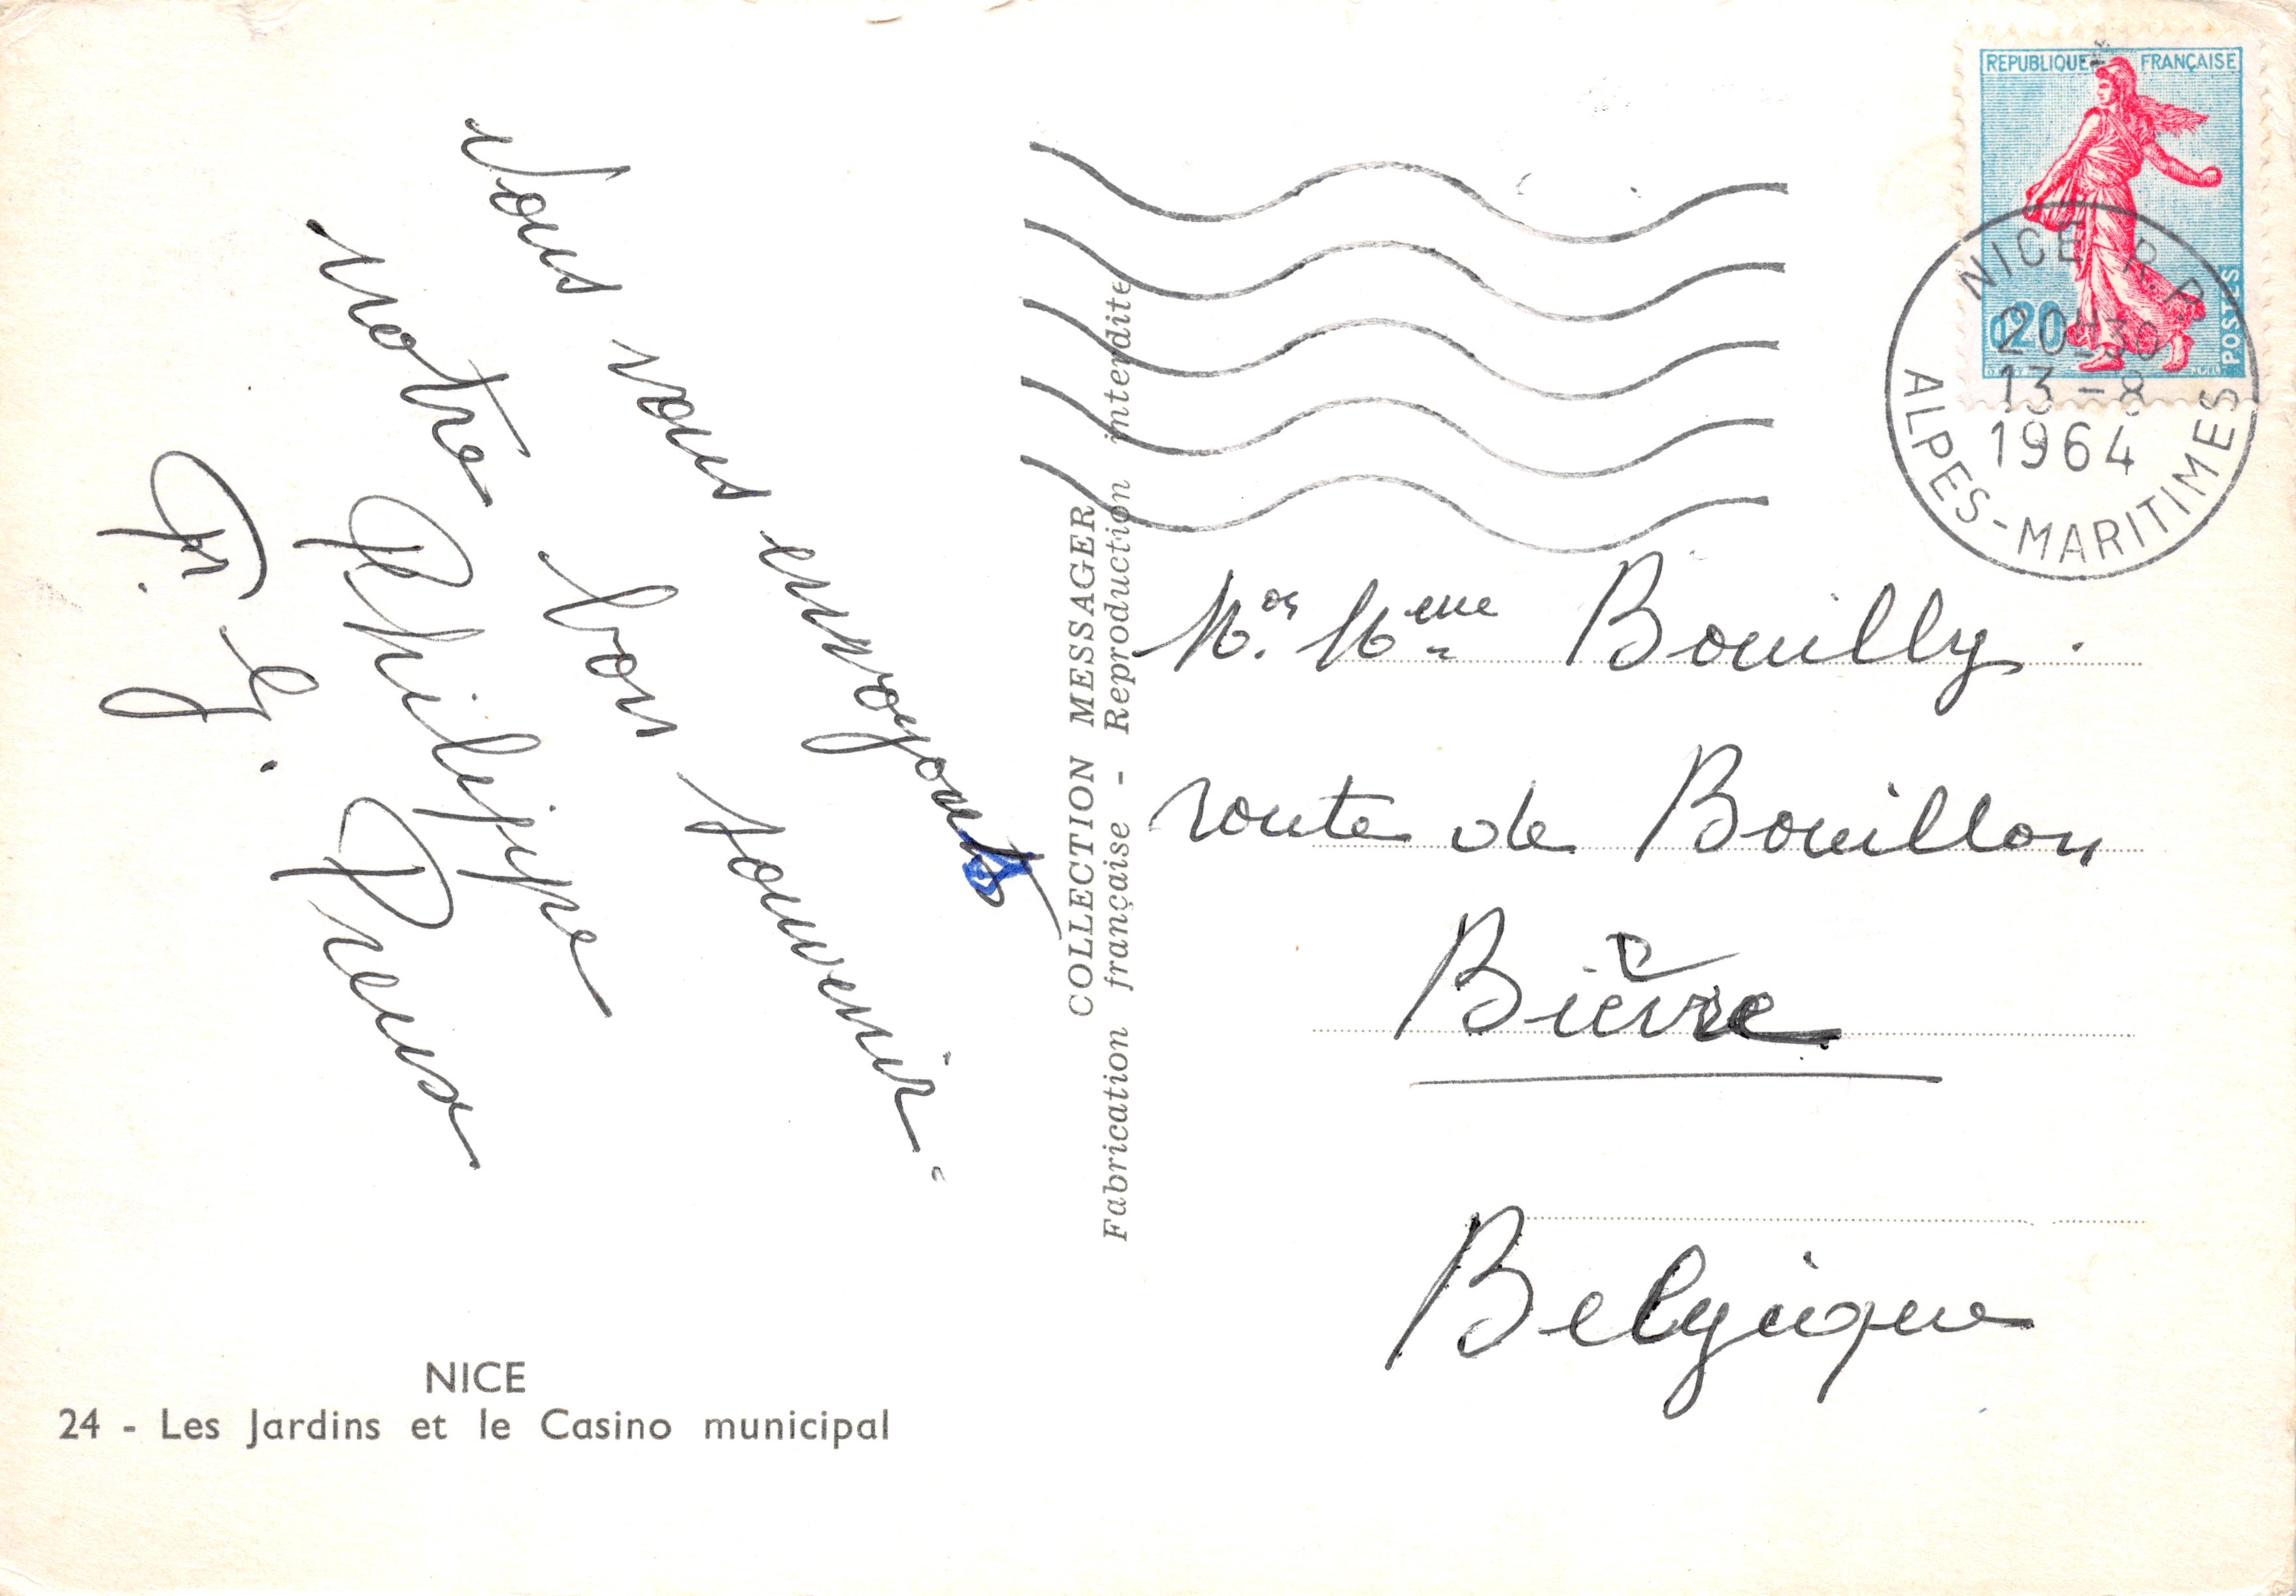 Nous vous envoyons
notre bon souvenir.
Philippe Preux
REPUBLIQUE FRANÇAISE
0,20
POSTES
NICE R.P.
20H30
13-8
1964
ALPES-MARITIMES
COLLECTION MESSAGER
Fabrication française - Reproduction interdite
Bouilly.
route de Bouillon
Bièvre
Belgique
NICE
24 - Les Jardins et le Casino municipal